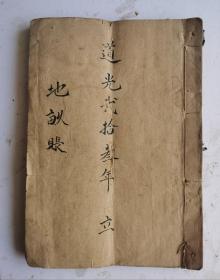 道光弍拾叁年 立
地畝賬